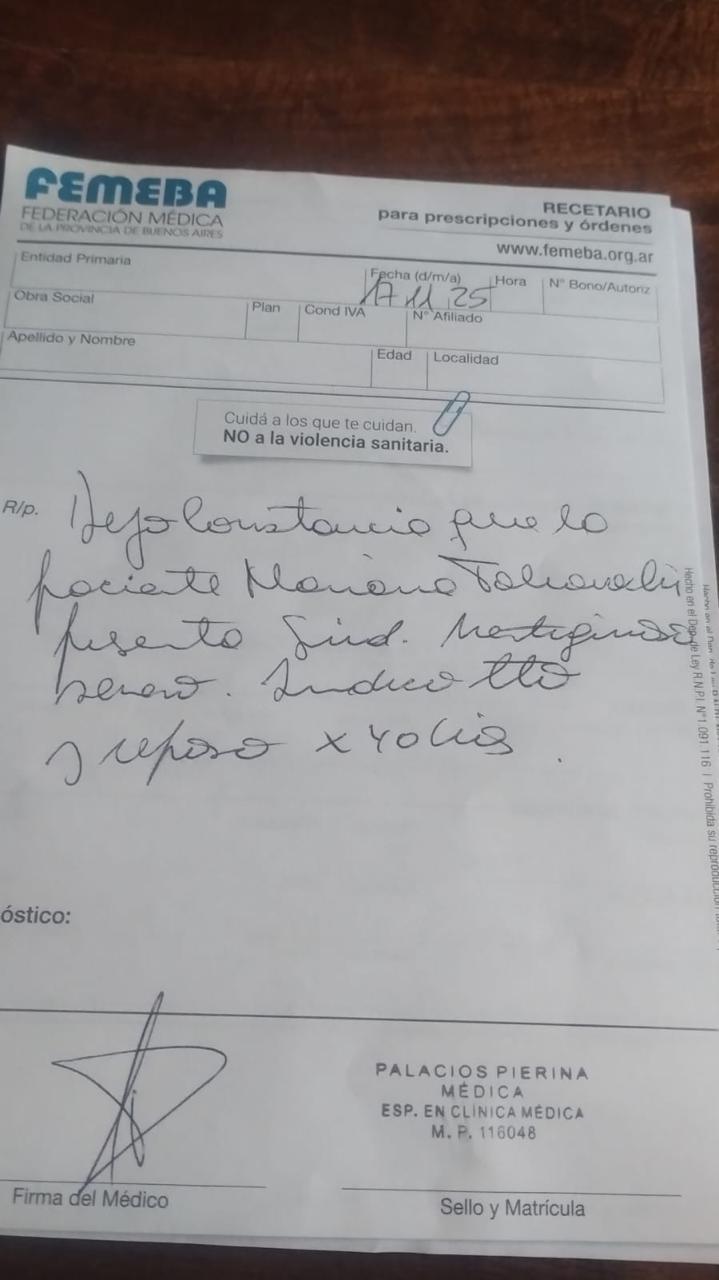 FEMEBA
FEDERACIÓN MÉDICA
DE LA PROVINCIA DE BUENOS AIRES
RECETARIO
para prescripciones y órdenes
www.femeba.org.ar
Entidad Primaria
Fecha (d/m/a)
17 11 25
Hora
N° Bono/Autoriz
Obra Social
Plan
Cond IVA
N° Afiliado
Apellido y Nombre
Edad
Localidad
Cuidá a los que te cuidan.
NO a la violencia sanitaria.
R/p.
Dejo Constancia que la
paciente Mariana
presenta Sind. Vertiginoso
severo. Indico tto
y reposo x 40 días.
óstico:
Firma del Médico
PALACIOS PIERINA
MÉDICA
ESP. EN CLÍNICA MÉDICA
M. P. 116048
Sello y Matrícula
Hecho en el Dep. de Ley R.N.P.I. N° 1.091.116 | Prohibida su reproducción